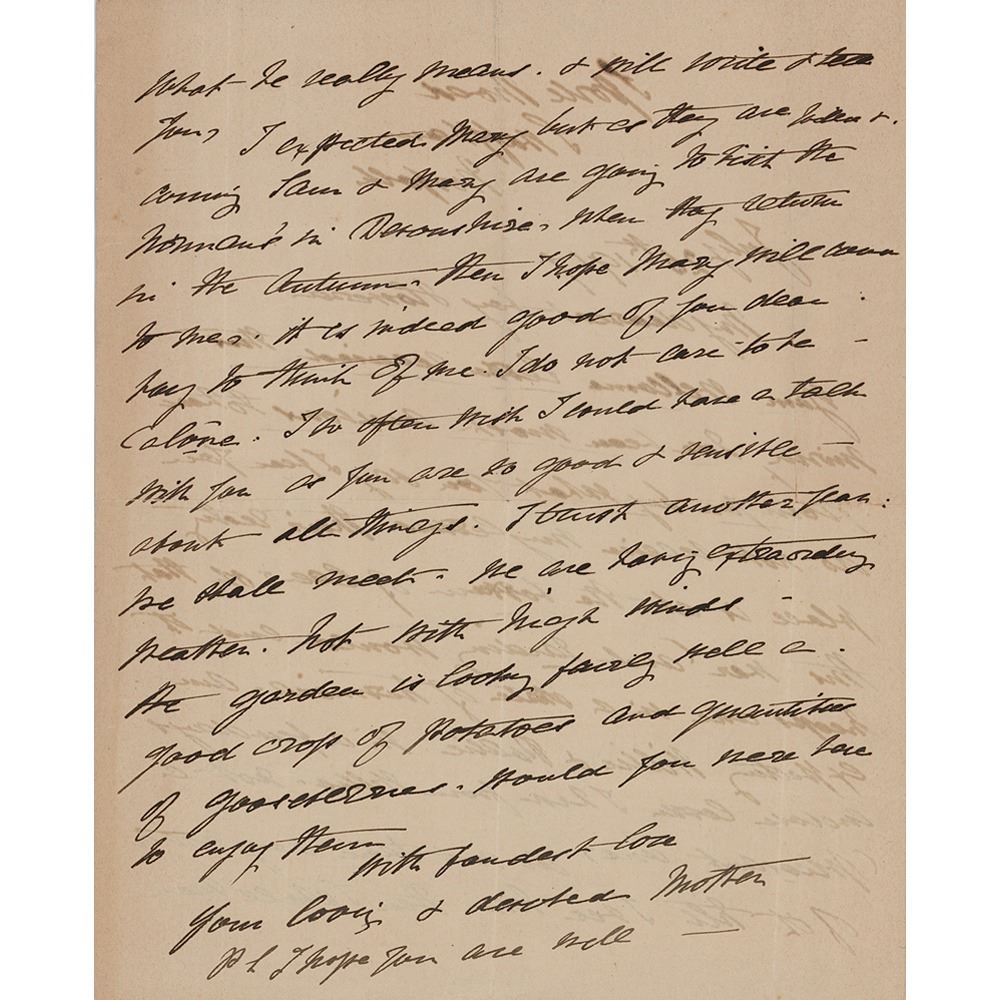 What he really means. & will write & tell
you, I expected Mary but as they are
coming Sam & Mary are going to visit the
Norman's in Devonshire, when they return
in the Autumn, then I hope Mary will come
to me. it is indeed good of you dear
boy to think of me. I do not care to be
alone. I so often wish I could have a talk
with you as you are so good & sensible
about all things. I trust another year
we shall meet. We are having extraordiny
weather. hot with high winds
the garden is looking fairly well a
good crop of potatoes and quantities
of gooseberries. would you were here
to enjoy them
With fondest love
Your loving & devoted Mother
PS I hope you are well